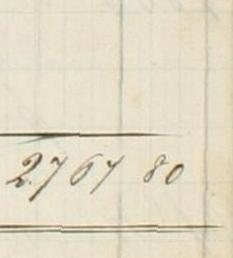 2767 80